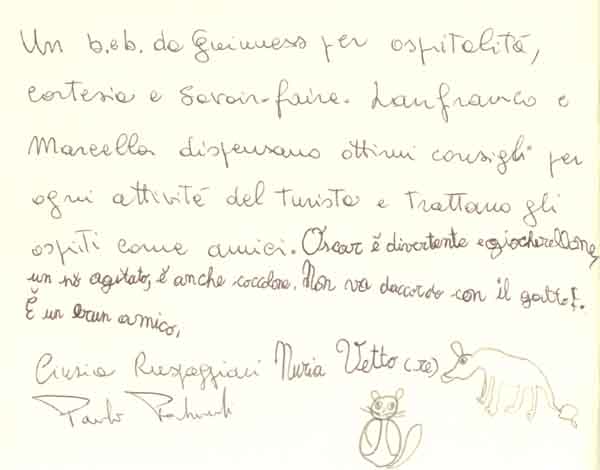 Un b.eb. da Guinness per ospitalità,
cortesia e savoir-faire. Lanfranco e
Marcella dispensano ottimi consigli per
ogni attività del turista e trattano gli
ospiti come amici. Oscar è divertente e giocherellone,
un pò agitato, è anche coccolone. Non va daccordo con il gatto!.
È un buon amico,
Cinzia Nuria Vetto (RE)
Paolo